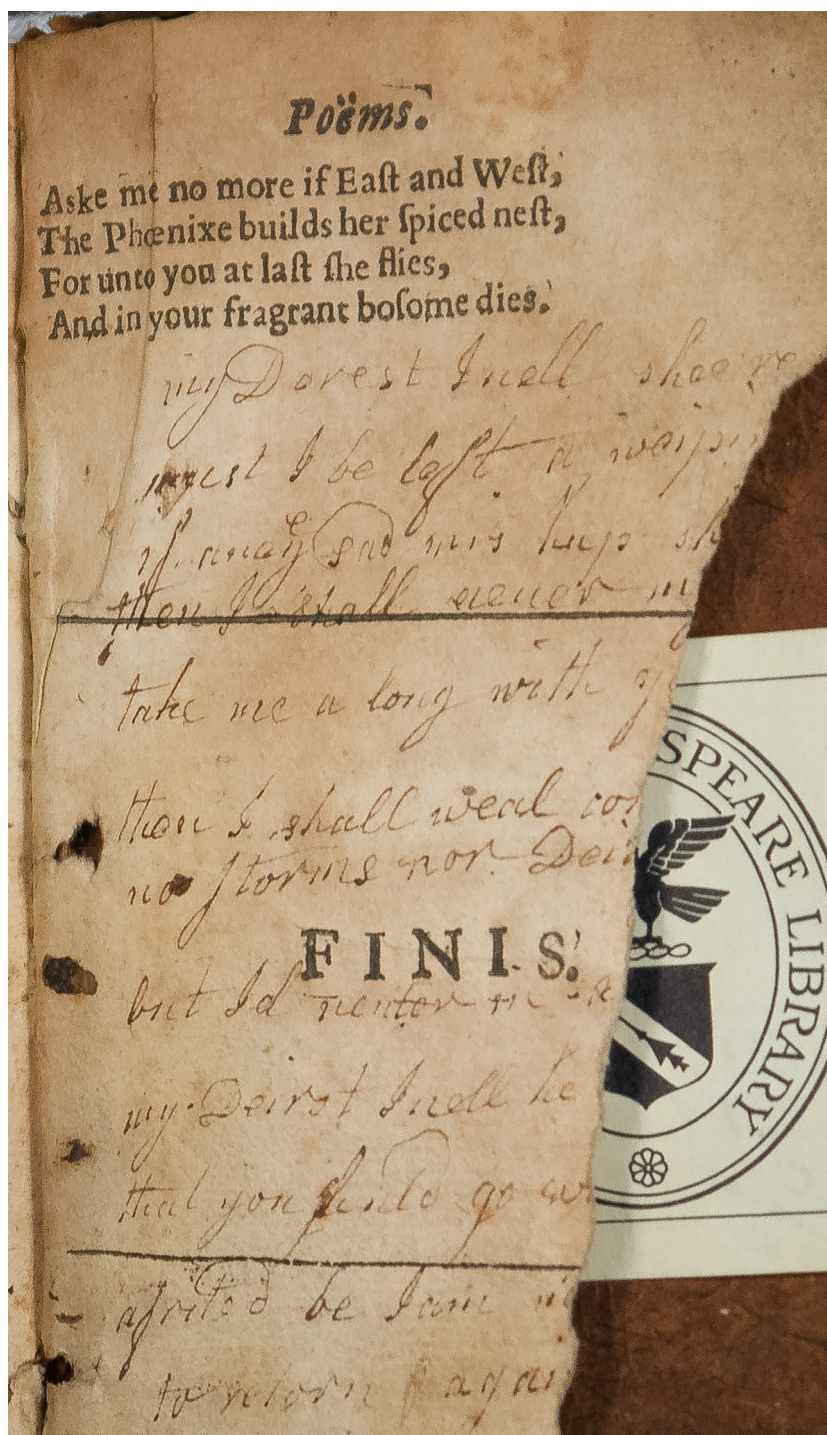 Poëms.
Aske me no more if Eaſt and Weſt,
The Phœnixe builds her ſpiced neſt,
For unto you at laſt ſhe flies,
And in your fragrant boſome dies.
my Dorest Jnell shee
must I be left a
if anaey sad mis hap sh
then I shall never m
take me a long with y
then I shall weal con
no storms nor
FINIS.
but Id
my Deirst Jnell he
that you go
be I am
to retorn agai
SPEARE LIBRARY